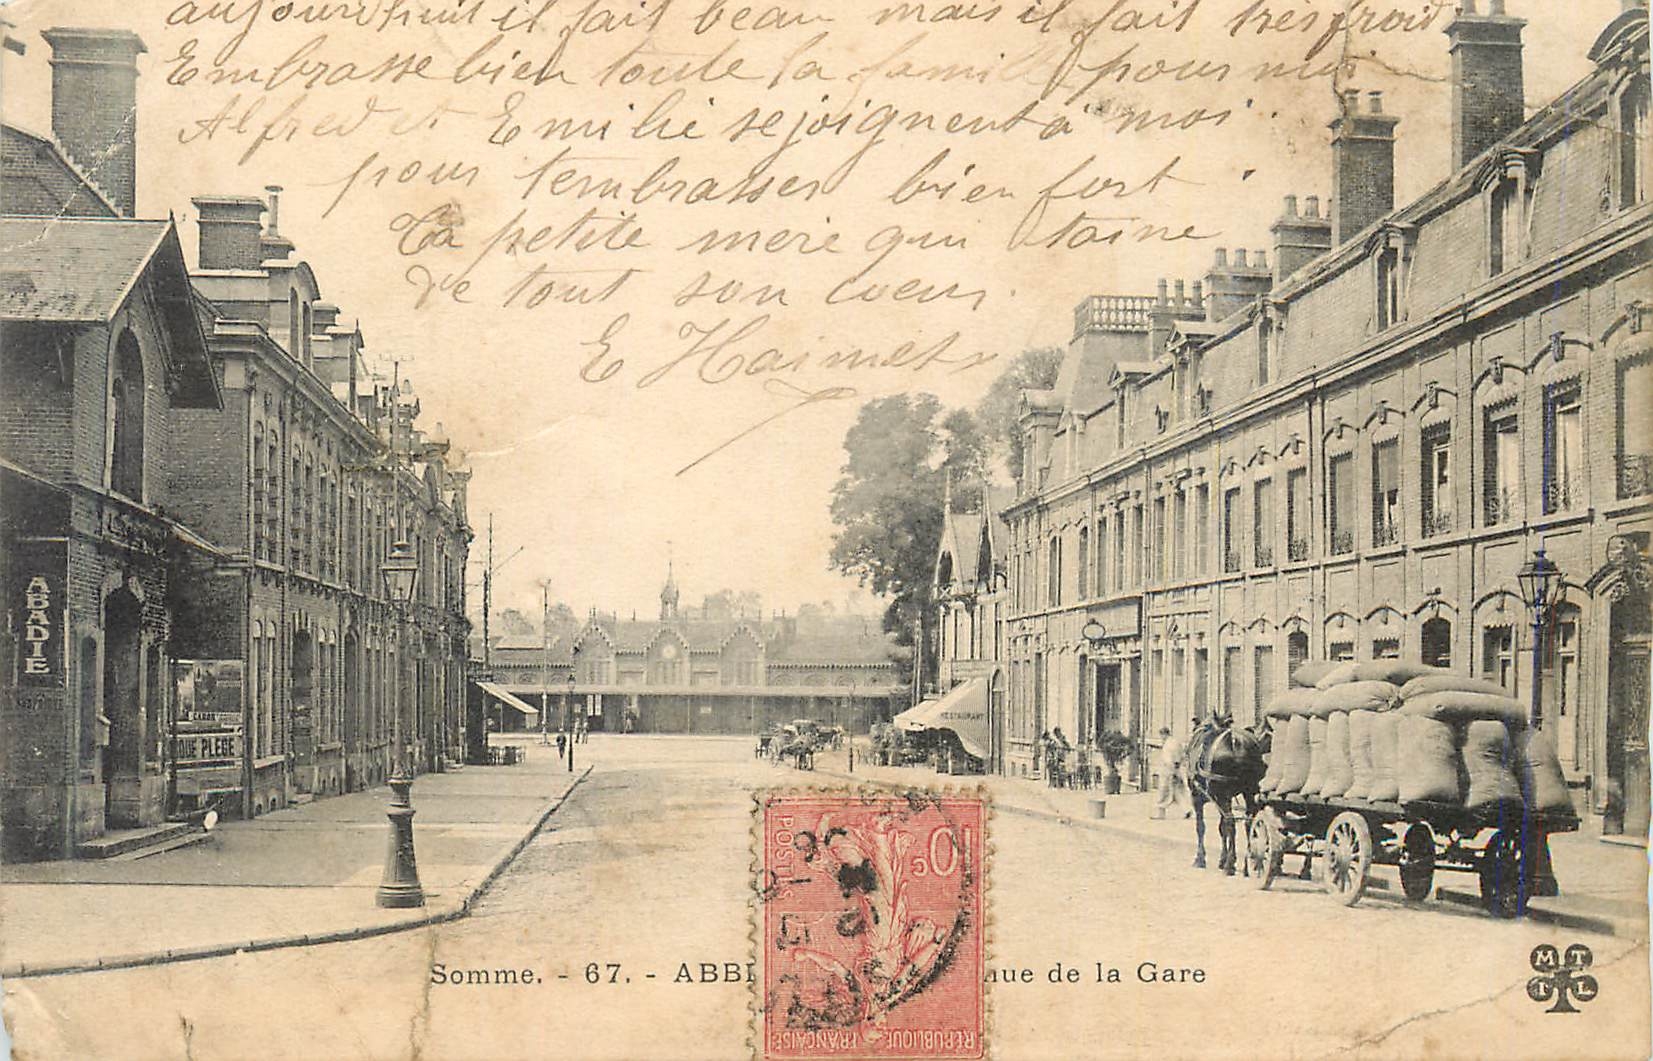 aujourd'hui il fait beau mais il fait très froid
Embrasse bien toute la famille pour moi
Alfred et Emilie se joignent à moi
pour t'embrasser bien fort
Ta petite mère qui t'aime
de tout son coeur.
E Haimet
ABADIE
QUE PLEGE
RESTAURANT
10c
POSTES
RÉPUBLIQUE
FRANÇAISE
Somme. - 67. - ABB nue de la Gare
M T
I L